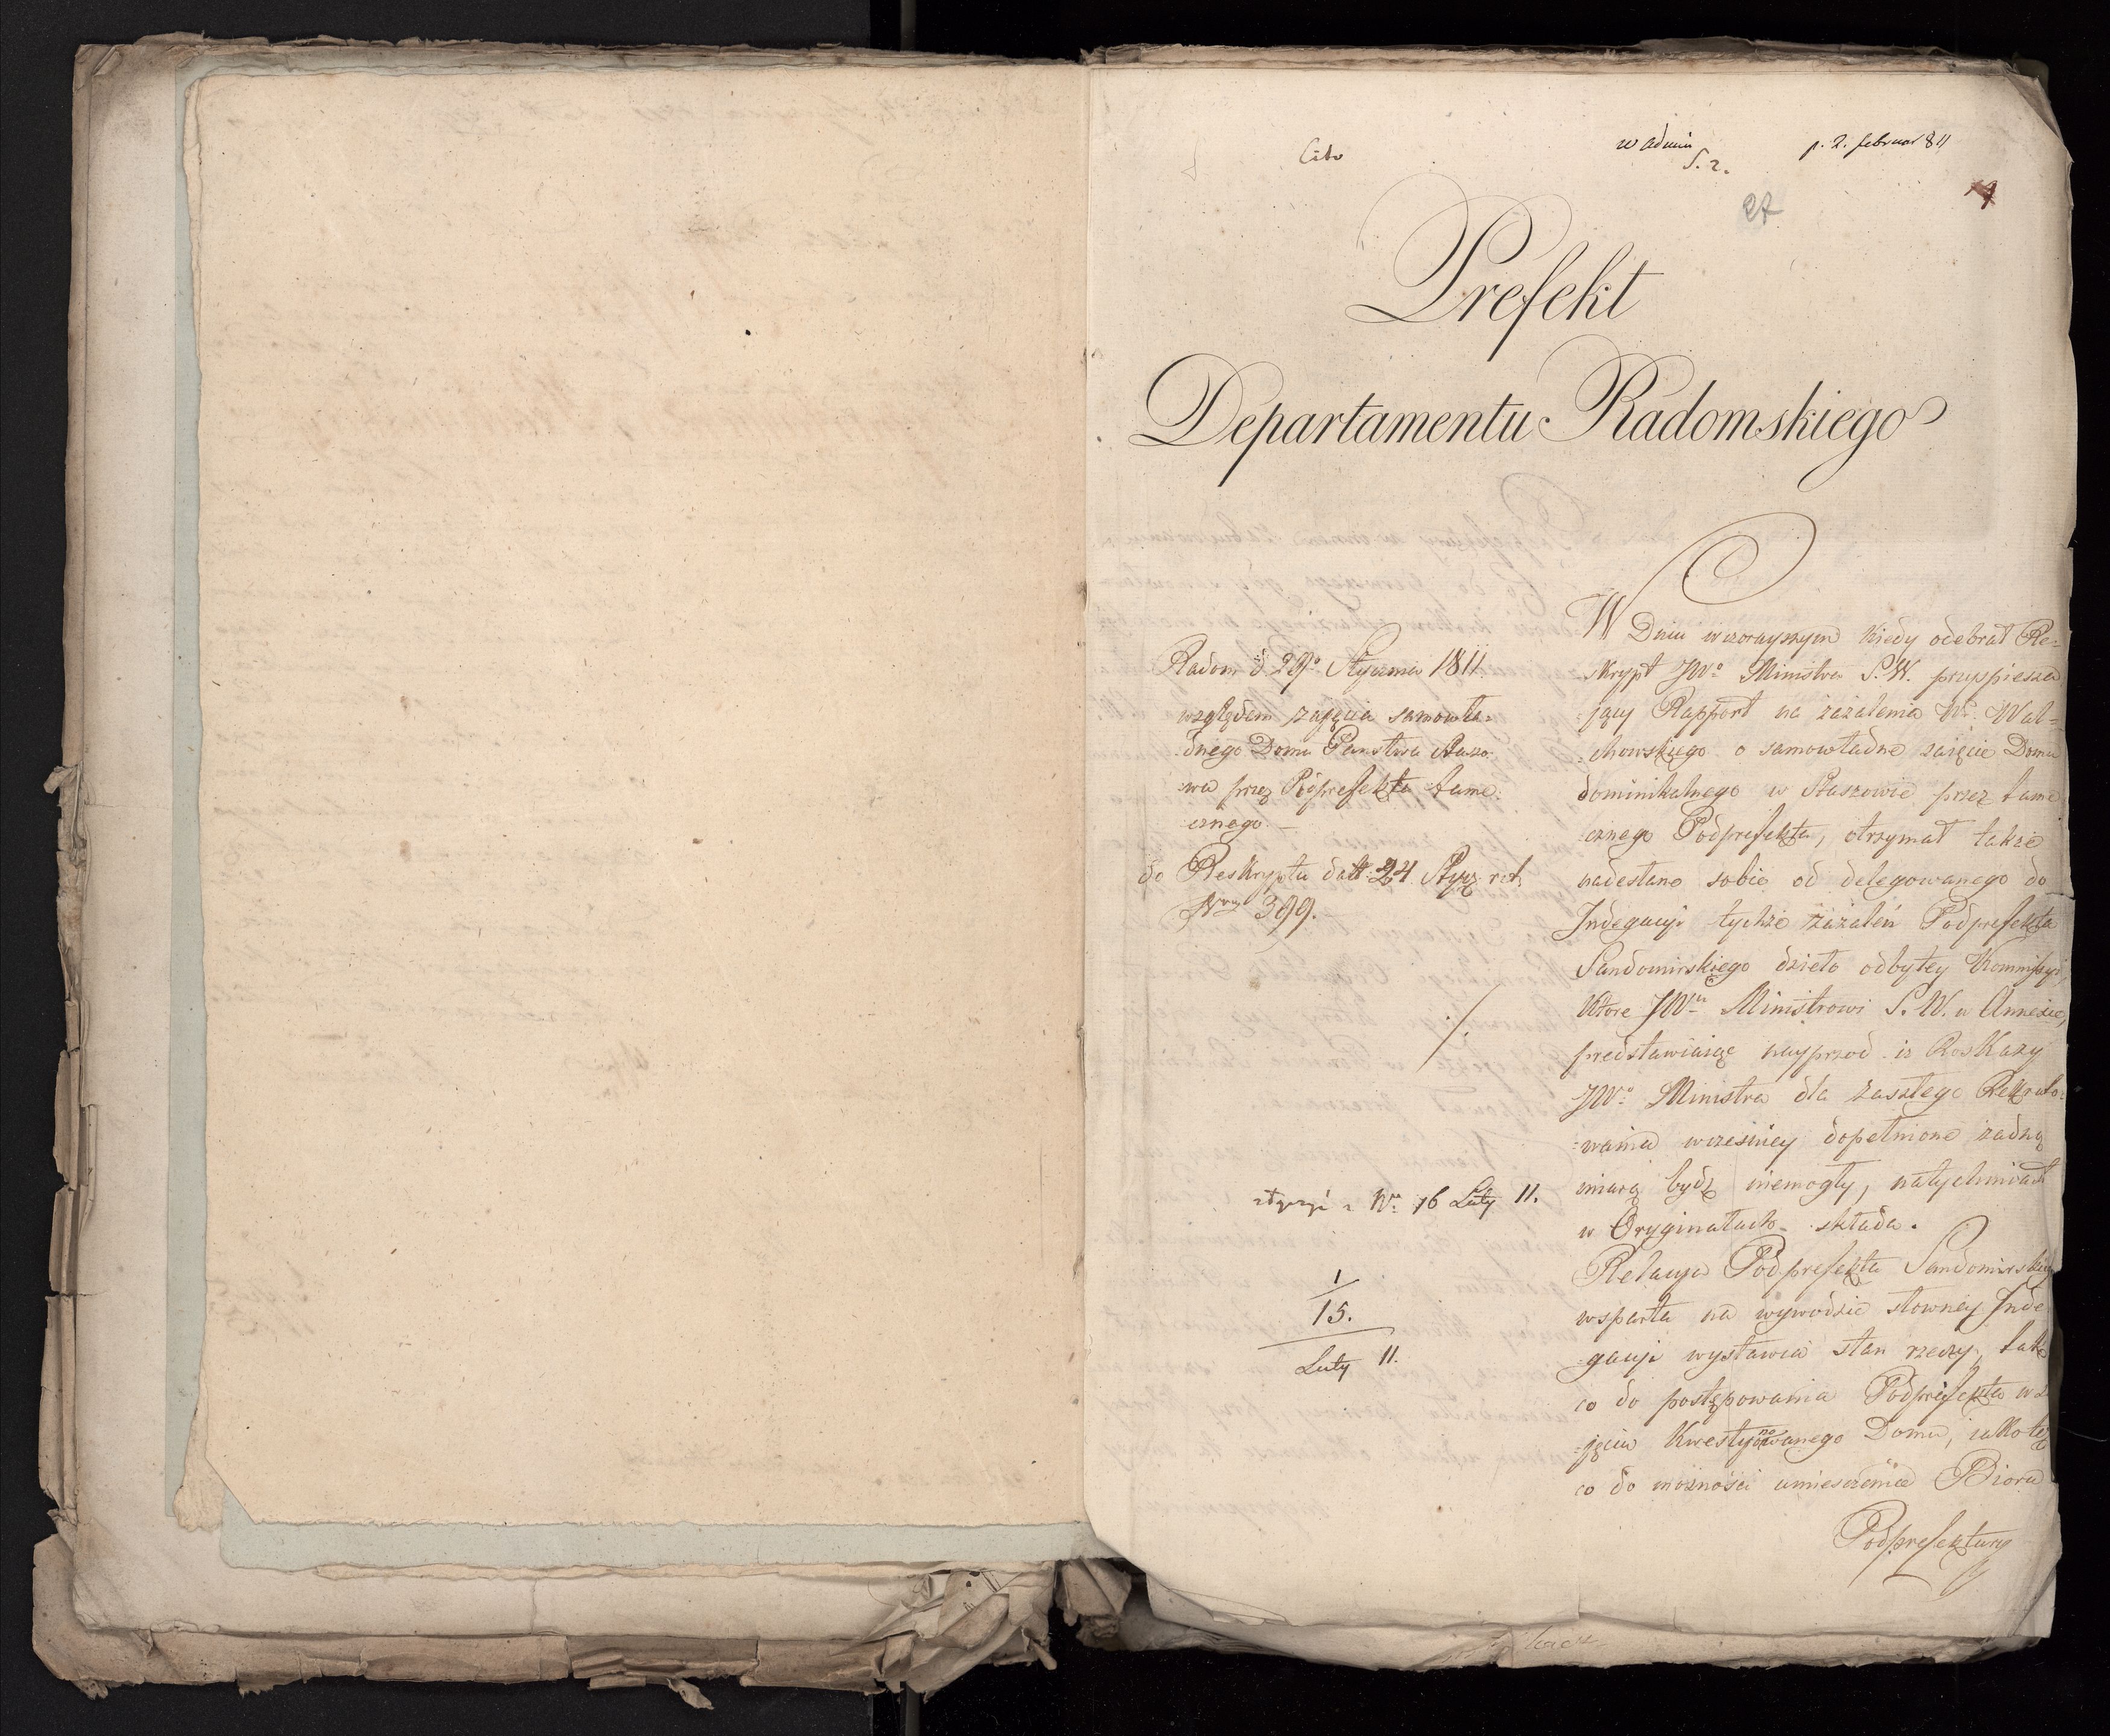 Cito
w admin
S. 2.
p. 2. februar 811
27
Prefekt
Departamentu Radomskiego
Radom d. 29º Stycznia 1811.
względem zajęcia samowła=
dnego Domu Państwa Staszo
wa przez Podprefekta tame=
cznego. —
do Reskryptu datt: 24 Stycz. rct.
Nro 399.
./.
W Dniu wczorayszym kiedy odebrał Re=
skrypt JWº Ministra S. W. przyspiesza
jący Rapport na zażalenia Wº Wal=
chowskiego o samowładne zaięcie Domu
dominikalnego w Staszowie przez tame
cznego Podprefekta, otrzymał także
nadesłane sobie od delegowanego do
Indegacyi tychże zażaleń Podprefekta
Sandomirskiego dzieło odbytey Kommissyi,
które JWu Ministrowi S. W. w Annexie,
predstawiaiąc nayprzod iż Roskazy
JWº Ministra dla zaszłego Rekruto=
wania wcześniey dopełnione żadną
miarą bydz niemogły, natychmiast
w Oryginałach składa.
Relacya Podprefekta Sandomirskie
wsparta na wywodzie słowney Inde
gacyi wystawia stan rzeczy, tak
co do postępowania Podprefekta w za
jęciu kwestyonowanego Domu, iako też
co do możności umieszczenia Biora
Podprefektury
Nº 16 Luty 11.
1
15.
Luty 11.